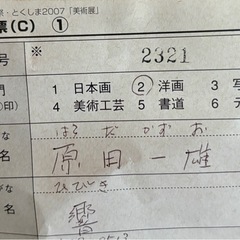 祭・とくしま2007「美術展」
票(C) ①
※ 2321
門 1 日本画 ②洋画 3 写
(○印) 4 美術工芸 5 書道 6 元
な はら だ かず お
名 原田一雄
がな ひびき
名 響